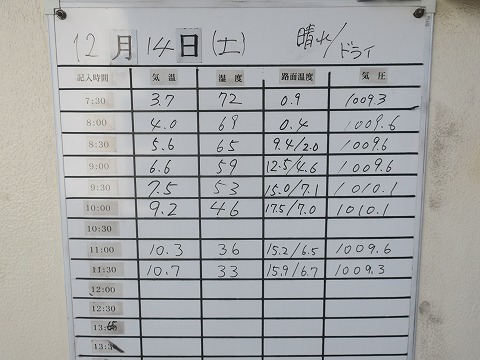 12月14日(土) 晴れ/ドライ
記入時間 気温 湿度 路面温度 気圧
7:30 3.7 72 0.9 1009.3
8:00 4.0 69 0.4 1009.6
8:30 5.6 65 9.4/2.0 1009.6
9:00 6.6 59 12.5/4.6 1009.6
9:30 7.5 53 15.0/7.1 1010.1
10:00 9.2 46 17.5/7.0 1010.1
10:30
11:00 10.3 36 15.2/6.5 1009.6
11:30 10.7 33 15.9/6.7 1009.3
12:00
12:30